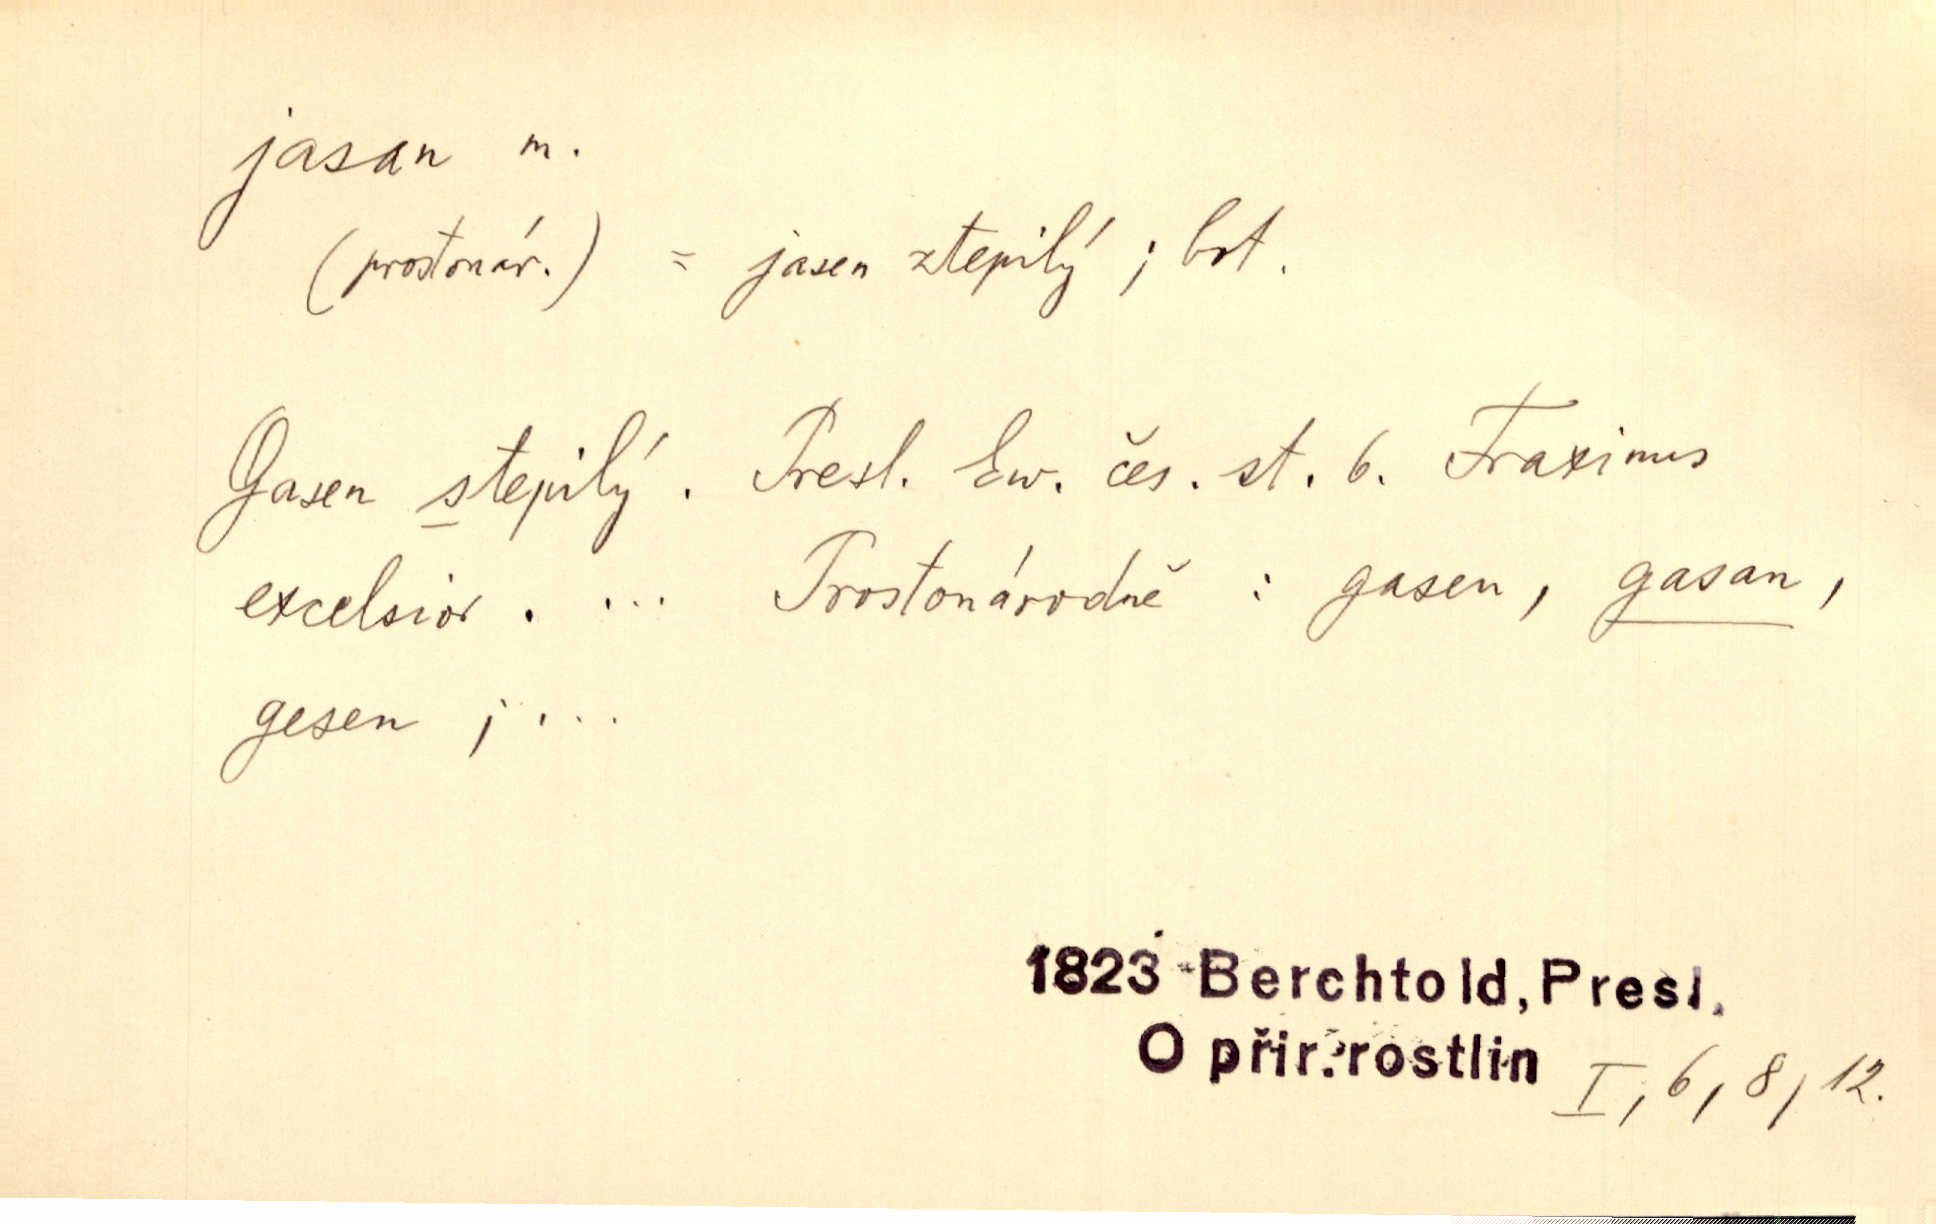 jasan m.
(prostonár.) = jasen ztepilý; bot.
Gasen stepilý. Presl. Kw. čes. st. 6. Fraxinus
excelsior. ... Prostonárodně : gasen, gasan,
gesen ; ...
1823 Berchtold, Presl.
O přir. rostlin I, 6, 8, 12.